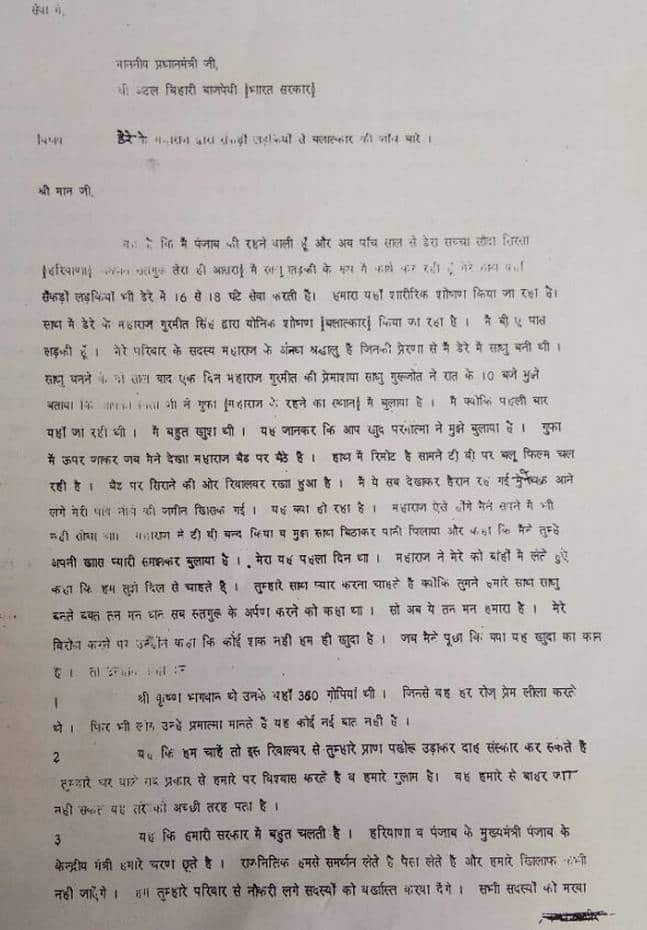 सेवा में,
माननीय प्रधानमंत्री जी,
श्री अटल बिहारी बाजपेयी |भारत सरकार|
विषय डेरे के महाराज द्वारा सैंकड़ों लड़कियों से बलात्कार की जांच बारे ।
श्री मान जी,
यह है कि मैं पंजाब की रहने वाली हूँ और अब पाँच साल से डेरा सच्चा सौदा सिरसा
|हरियाणा| सतगुरु तेरा ही आसरा| में साधु लड़की के रूप में कार्य कर रही हूँ मेरे साथ यहाँ
सैंकड़ों लड़कियाँ भी डेरे में 16 से 18 घंटे सेवा करती है। हमारा यहाँ शारीरिक शोषण किया जा रहा है।
साथ में डेरे के महाराज गुरमीत सिंह द्वारा योनिक शोषण |बलात्कार| किया जा रहा है । मैं बी ए पास
लड़की हूँ । मेरे परिवार के सदस्य महाराज के अंनधे श्रद्धालु है जिनकी प्रेरणा से मैं डेरे में साधु बनी थी ।
साधु बनने के दो साल बाद एक दिन महाराज गुरमीत की साधु गुरुजोत ने रात के 10 बजे मुझे
बताया कि आपको पिता जी ने गुफा |महाराज के रहने का स्थान| में बुलाया है । मैं क्योंकि पहली बार
वहाँ जा रही थी । मैं बहुत खुश थी । यह जानकर कि आप खुद परमात्मा ने मुझे बुलाया है । गुफा
में ऊपर जाकर जब मैंने देखा महाराज बैड पर बैठे है । हाथ में रिमोट है सामने टी वी पर ब्लू फिल्म चल
रही है । बैड पर सिराने की ओर रिवालवर रखा हुआ है । मैं ये सब देखकर हैरान रह गई मुझे चक्कर आने
लगे मेरी पांव नीचे की जमीन खिसक गई । यह क्या हो रहा है । महाराज ऐसे होंगे मैंने सपने में भी
नहीं सोचा था। महाराज ने टी वी बन्द किया व मुझे साथ बिठाकर पानी पिलाया और कहा कि मैंने तुम्हे
अपनी खास प्यारी समझकर बुलाया है । मेरा यह पहला दिन था । महाराज ने मेरे को बांहों में लेते हुऐ
कहा कि हम तुझे दिल से चाहते है । तुम्हारे साथ प्यार करना चाहते है क्योंकि तुमने हमारे साथ साधु
बनते वक्त तन मन धन सब सतगुरु के अर्पण करने को कहा था । सो अब ये तन मन हमारा है । मेरे
विरोध करने पर उन्होंने कहा कि कोई शक नही हम ही खुदा है । जब मैंने पूछा कि क्या यह खुदा का काम
है । तो उन्होंने कहा :-
1 श्री कृष्ण भगवान थे उनके यहाँ 360 गोपियां थी । जिनसे वह हर रोज प्रेम लीला करते
थे । फिर भी लोग उन्हे प्रमात्मा मानते है यह कोई नई बात नही है ।
2 यह कि हम चाहें तो इस रिवाल्वर से तुम्हारे प्राण पखेरू उड़ाकर दाह संस्कार कर सकते है
तुम्हारे घर वाले प्रकार से हमारे पर विश्वास करते है व हमारे गुलाम है। वह हमारे से बाहर जा
नही सकते यह तेरे को अच्छी तरह पता है ।
3 यह कि हमारी सरकार में बहुत चलती है । हरियाणा व पंजाब के मुख्यमंत्री पंजाब के
केन्द्रीय मंत्री हमारे चरण छूते है । राजनितिक हमसे समर्थन लेते है पैसा लेते है और हमारे खिलाफ कभी
नही जाऐंगे । हम तुम्हारे परिवार से नौकरी लगे सदस्यों को बर्खास्त करवा देंगे । सभी सदस्यों को मरवा